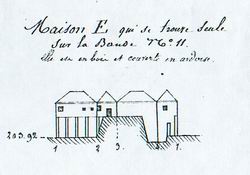 Maison E qui se trouve seule
sur la Bande Nº 11.
elle est en bois et couverte en ardoise.
203.92
1 2 3. 2. 1.